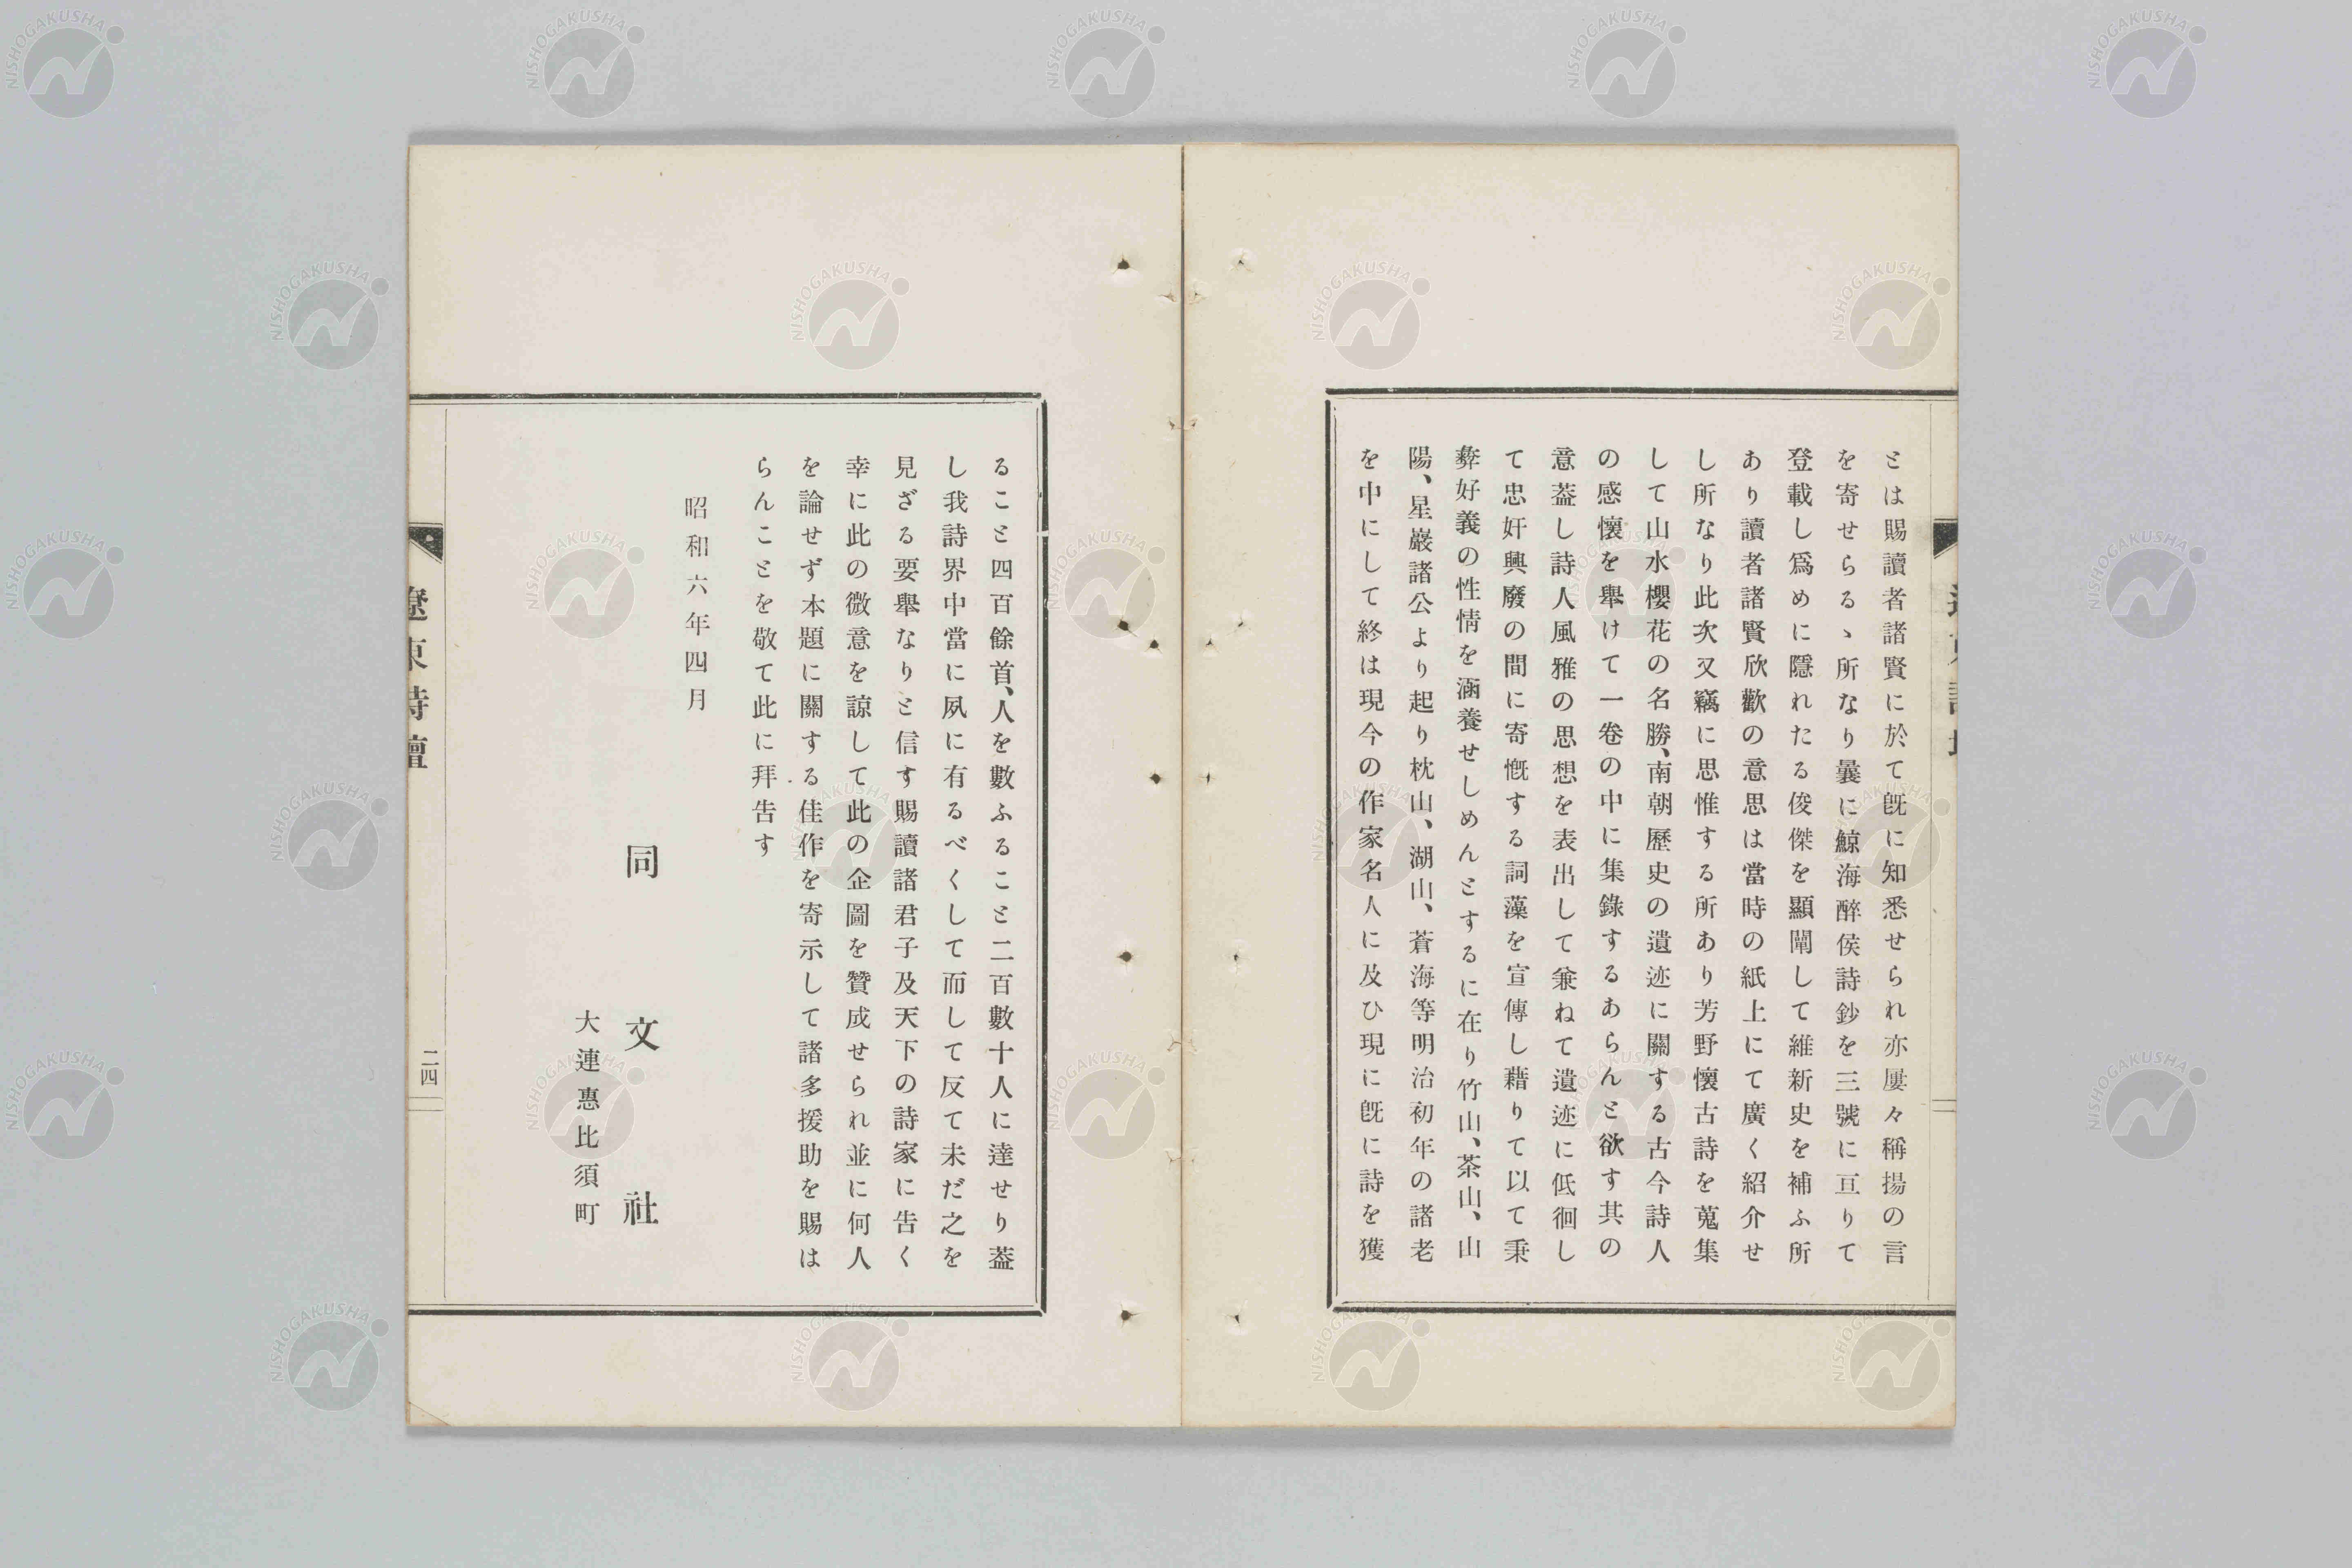 とは賜讀者諸賢に於て既に知悉せられ亦屢々稱揚の言
を寄せらるゝ所なり曩に鯨海醉侯詩鈔を三號に亘りて
登載し爲めに隱れたる俊傑を顯闡して維新史を補ふ所
あり讀者諸賢欣歡の意思は當時の紙上にて廣く紹介せ
し所なり此次又竊に思惟する所あり芳野懷古詩を蒐集
して山水櫻花の名勝、南朝歷史の遺迹に關する古今詩人
の感懷を舉けて一卷の中に集錄するあらんと欲す其の
意葢し詩人風雅の思想を表出して兼ねて遺迹に低徊し
て忠奸興廢の間に寄慨する詞藻を宣傳し藉りて以て秉
彜好義の性情を涵養せしめんとするに在り竹山、茶山、山
陽、星巖諸公より起り枕山、湖山、蒼海等明治初年の諸老
を中にして終は現今の作家名人に及ひ現に既に詩を獲
ること四百餘首、人を數ふること二百數十人に達せり葢
し我詩界中當に夙に有るべくして而して反て未だ之を
見ざる要舉なりと信す賜讀諸君子及天下の詩家に告く
幸に此の微意を諒して此の企圖を贊成せられ並に何人
を論せず本題に關する佳作を寄示して諸多援助を賜は
らんことを敬て此に拜告す
昭和六年四月
同文社
大連惠比須町
遼東詩壇
二四
NISHOGAKUSHA